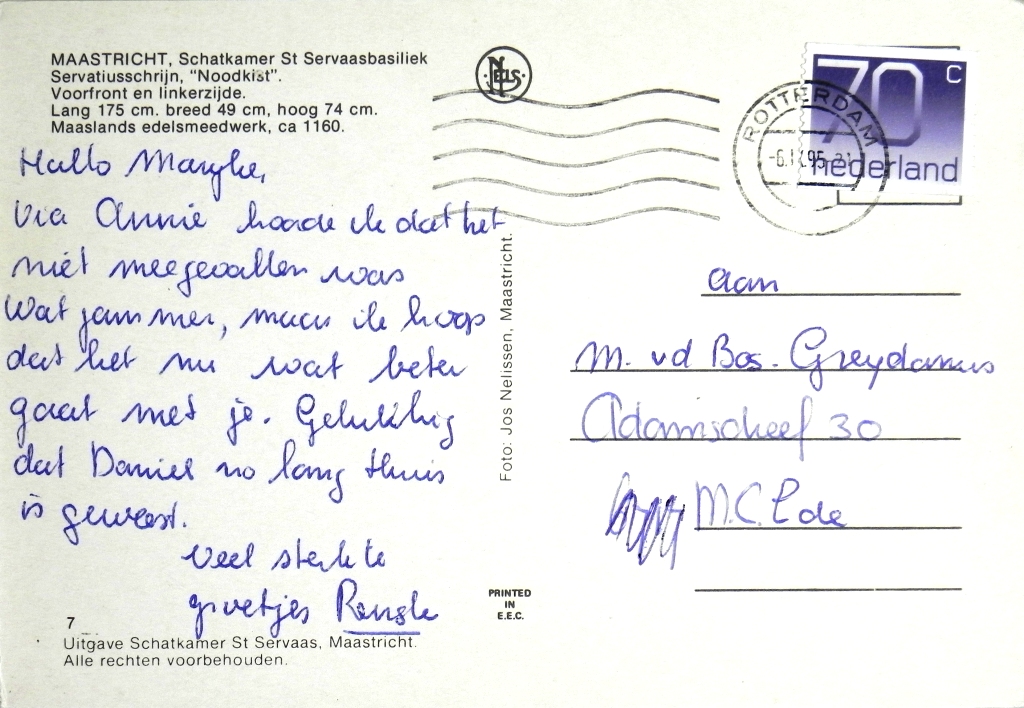 MAASTRICHT, Schatkamer St Servaasbasiliek
Servatiusschrijn, "Noodkist".
Voorfront en linkerzijde.
Lang 175 cm. breed 49 cm, hoog 74 cm.
Maaslands edelsmeedwerk, ca 1160.
NELS
70 c
nederland
ROTTERDAM
Hallo Maryke,
Via Annie hoorde ik dat het
niet meegevallen was
Wat jammer, maar ik hoop
dat het nu wat beter
gaat met je. Gelukkig
dat Daniel zo lang thuis
is geweest.
Veel sterkte
groetjes Renske
Foto: Jos Nelissen, Maastricht.
aan
M. vd Bos. Greydanus
Adamscheef 30
M.C.
PRINTED
IN
E.E.C.
7
Uitgave Schatkamer St Servaas, Maastricht.
Alle rechten voorbehouden.